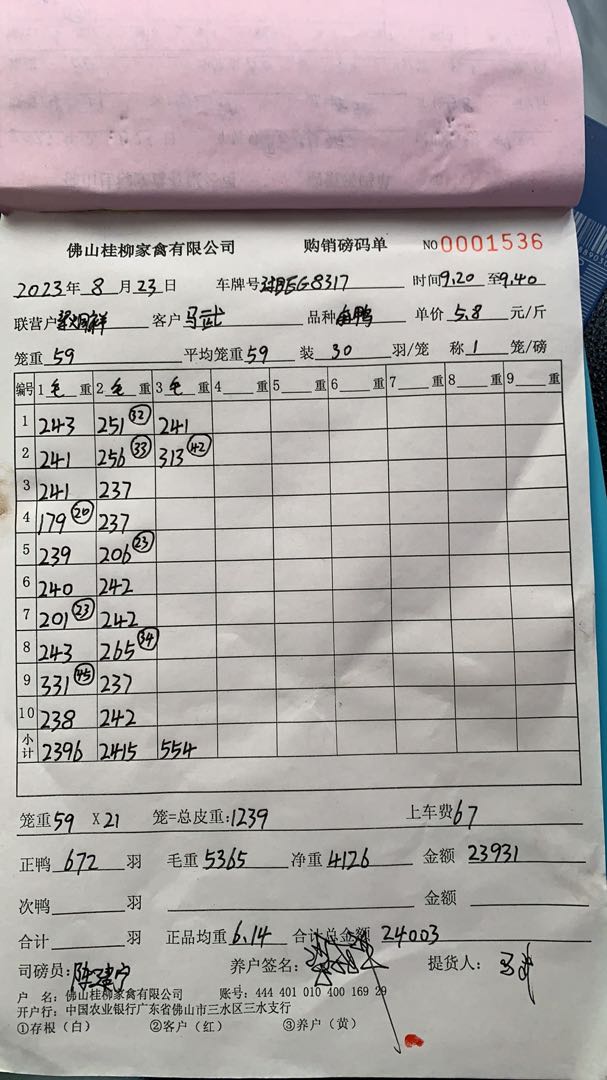 佛山桂柳家禽有限公司 购销磅码单 NO 0001536
2023年 8 月 23 日 车牌号 EG8317 时间 9.20 至 9.40
联营户 客户 马武 品种 鸭 单价 5.8 元/斤
笼重 59 平均笼重 59 装 30 羽/笼 称 1 笼/磅
编号 1 毛 重 2 毛 重 3 毛 重 4 重 5 重 6 重 7 重 8 重 9 重
1 243 251 (32) 241
2 241 256 (33) 313 (42)
3 241 237
4 179 (20) 237
5 239 206 (23)
6 240 242
7 201 (23) 242
8 243 265 (34)
9 331 (45) 237
10 238 242
小计 2396 2415 554
笼重 59 X 21 笼=总皮重: 1239 上车费 67
正鸭 672 羽 毛重 5365 净重 4126 金额 23931
次鸭 羽 金额
合计 羽 正品均重 6.14 合计总金额 24003
司磅员: 陈建宁 养户签名: 提货人: 马武
户 名: 佛山桂柳家禽有限公司 账号: 444 401 010 400 169 29
开户行: 中国农业银行广东省佛山市三水区三水支行
①存根（白） ②客户（红） ③养户（黄）